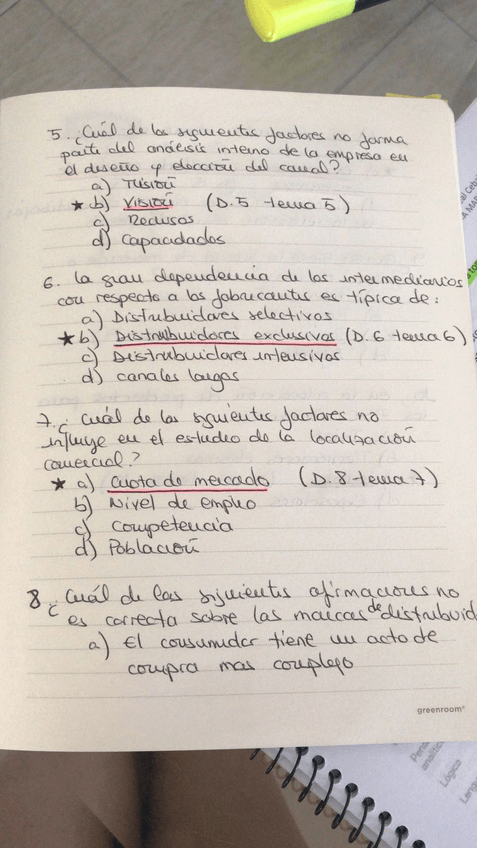 5. ¿Cuál de los siguientes factores no forma
parte del análisis interno de la empresa en
el diseño y elección del canal?
a) Misión
★ b) Visión (D.5 tema 5)
c) Recursos
d) Capacidades
6. La gran dependencia de los intermediarios
con respecto a los fabricantes es típica de:
a) Distribuidores selectivos
★ b) Distribuidores exclusivos (D.6 tema 6)
c) Distribuidores intensivos
d) canales largos
7. ¿Cuál de los siguientes factores no
influye en el estudio de la localización
comercial?
★ a) Cuota de mercado (D.8 tema 7)
b) Nivel de empleo
c) Competencia
d) Población
8. ¿Cuál de las siguientes afirmaciones no
es correcta sobre las marcas de distribuid
a) El consumidor tiene un acto de
compra mas complejo
greenroom®
Lógica